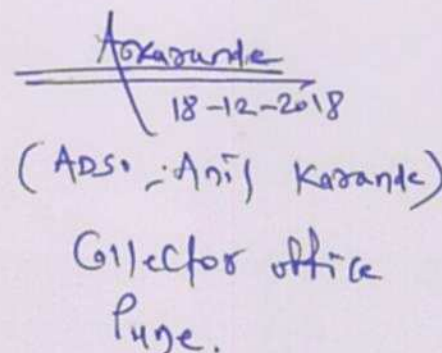 Askarande
18-12-2018
(ADSO - Anil Karande)
Collector office
Pune.